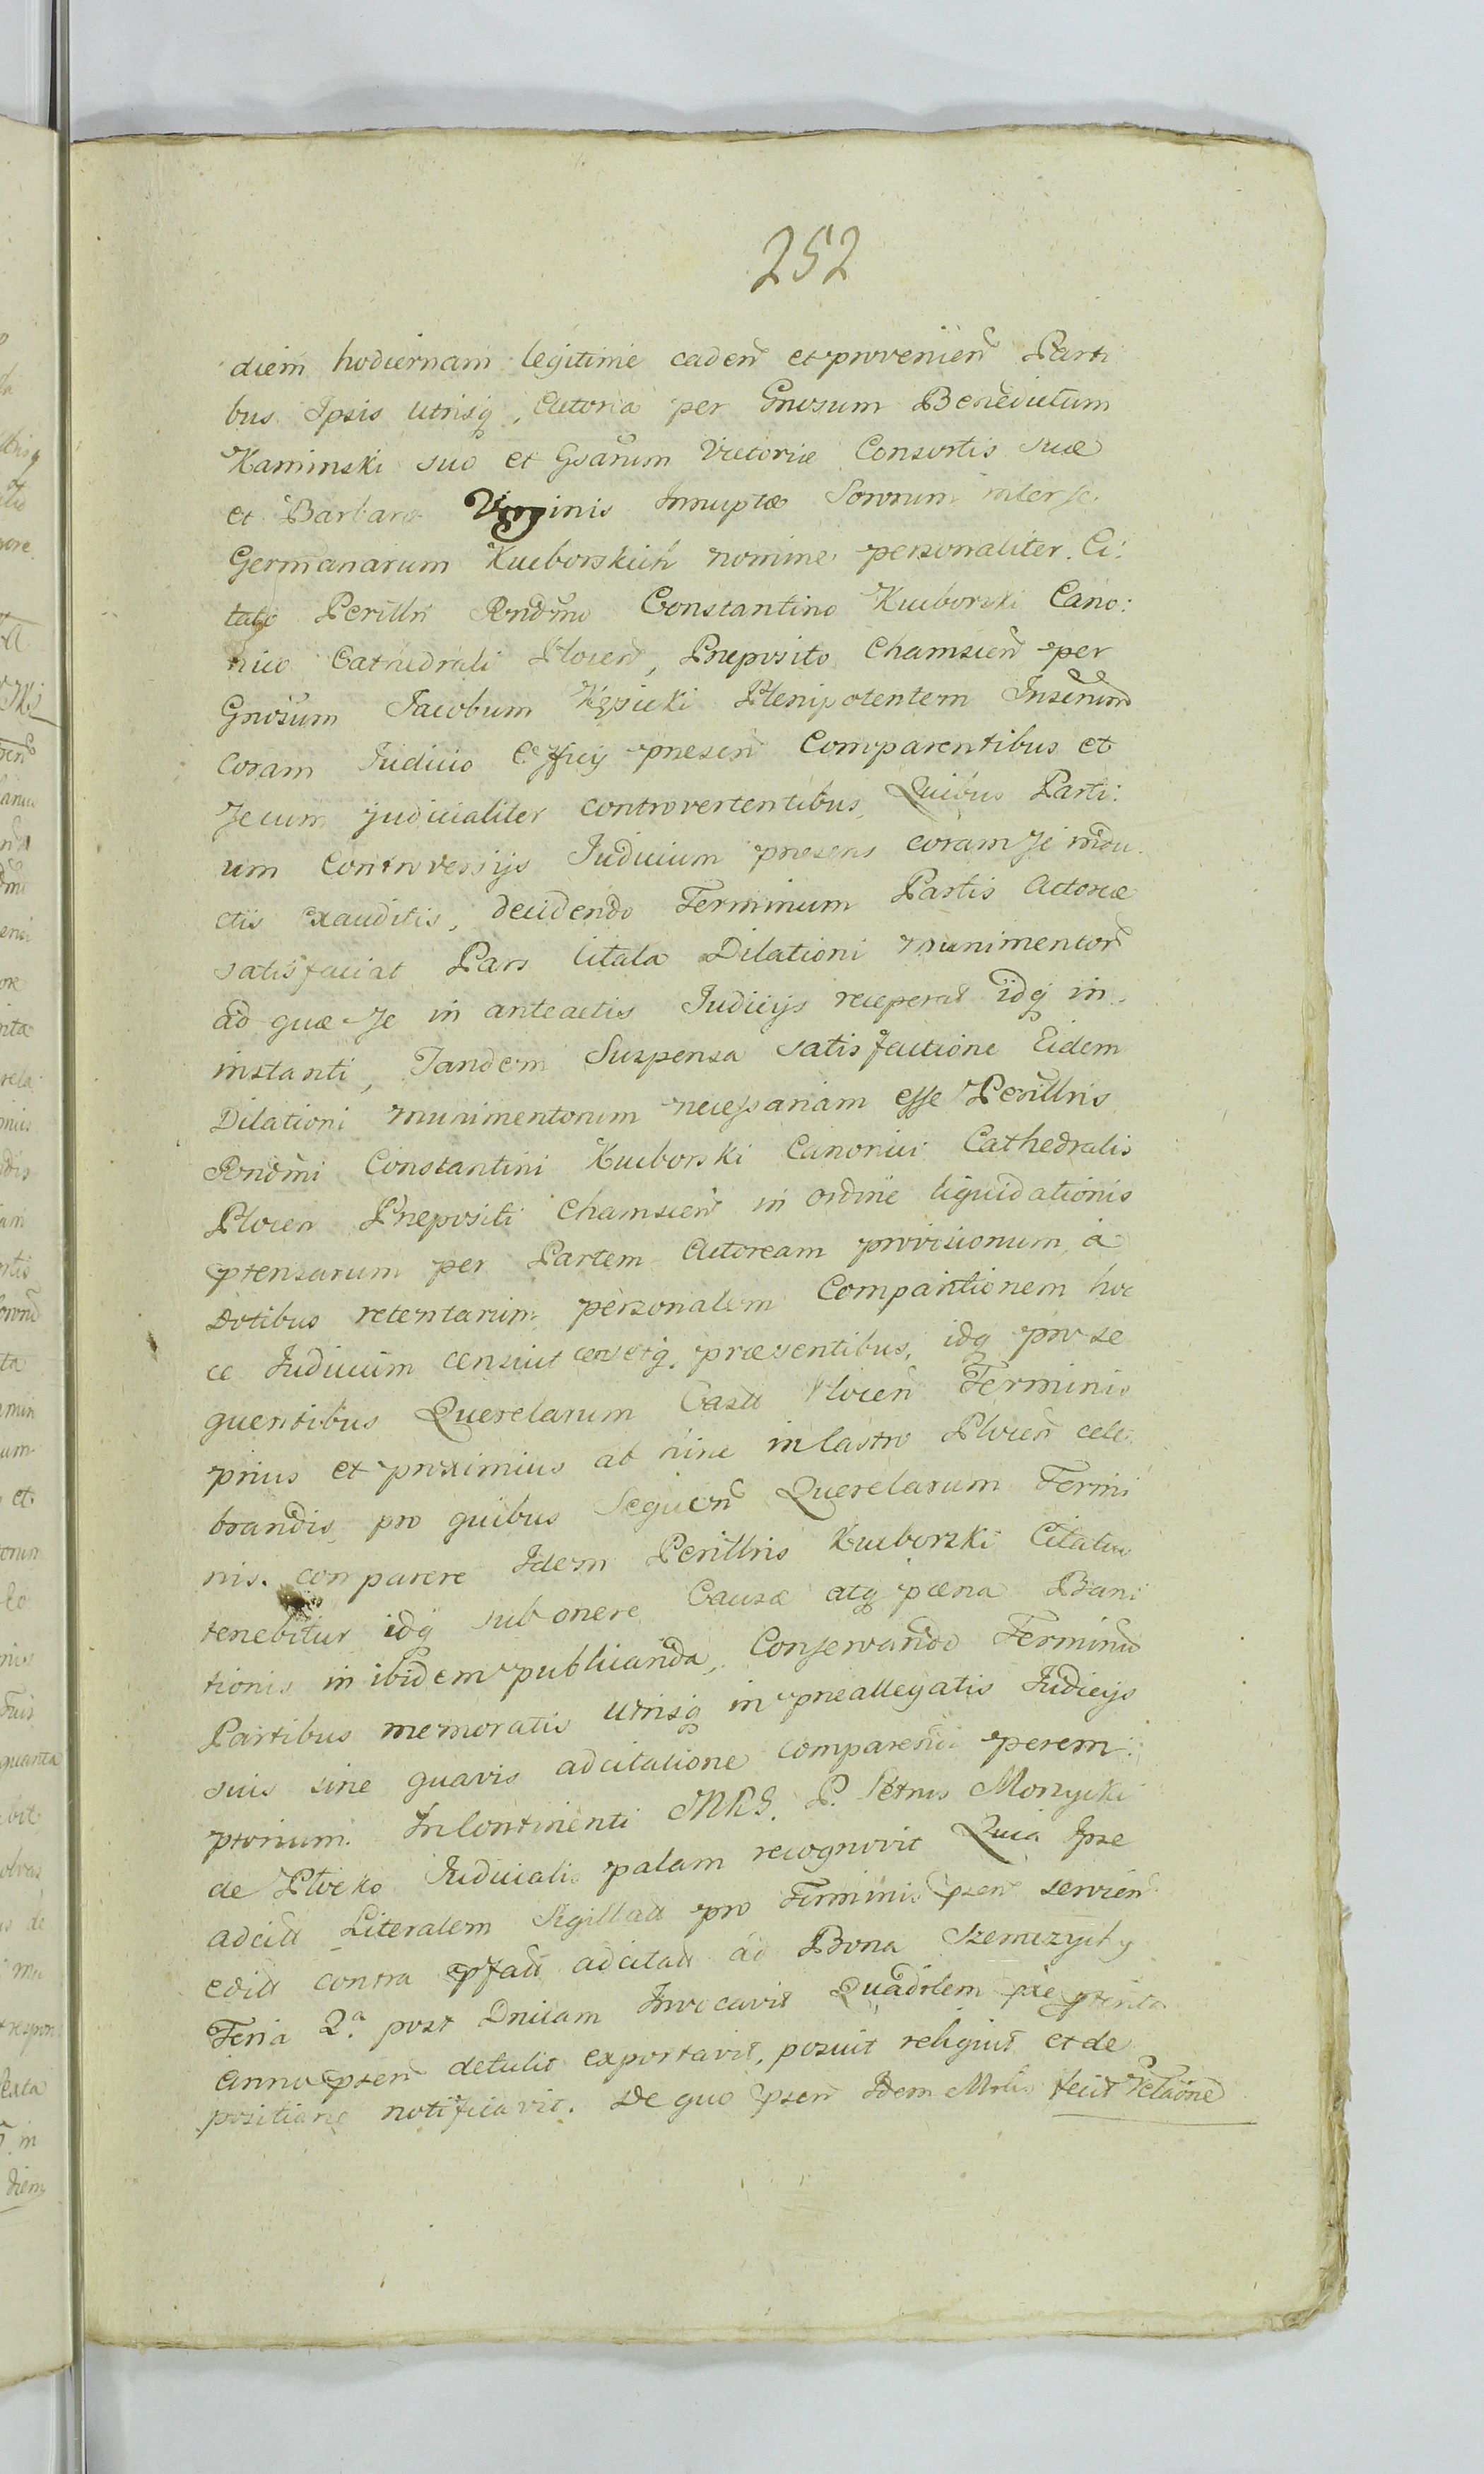 252
diem hodiernam legitime caden̄ et provenien̄ Parti
bus Ipsis utrisq, Actorea per Gnosum Benedictum
Kaminski suo et Gsarum Victoriæ Consortis suæ
et Barbaræ Virginis Innuptæ Sororum inter se
Germanarum Kucborskich nomine personaliter. Ci:
tato Perillri Rndmo Constantino Kucborski Cano:
nico Cathedrali Plocen̄, Præposito Chamscen̄ per
Gnosum Jacobum Kęsicki Plenipotentem Inserum
coram Judicio Officij præsen̄ Comparentibus et
secum judicialiter controvertentibus, Quibus Parti:
um Controversijs Judicium præsens coram se indu
ctis exauditis, decidendo Terminum Partis Actoreæ
satisfaciat Pars Citata Dilationi munimentor̄
ad quæ se in anteactis Judicijs receperat idq in
instanti, Tandem Suspensa satisfactione Eidem
Dilationi munimentorum necessariam esse Perillris
Rndmi Constantini Kucborski Canonici Cathedralis
Plocen Præpositi Chamscen̄ in ordine liquidationis
prtensarum per Partem Actoream provisionum, a
Dotibus retentarum personalem Comparitionem hoc
ce Judicium censuit censetq. præsentibus, idq pro se
quentibus Querelarum Castr Plocen̄ Terminis
prius et proximius ab hinc in Castro Plocen̄ cele
brandis, pro quibus Sequen̄ Querelarum Termi
nis. comparere Idem Perillris Kucborski Citatus
tenebitur idq sub onere Causæ atq pæna Bani
tionis in ibidem publicanda, Conservando Terminū
Partibus memoratis utrisq in præallegatis Judicijs
suis sine quavis adcitatione comparendi perem:
ptorium. In Continenti MRS. P. Petrus Monycki
de Plocko Judicialis palam recognovit Quia Ipse
adcitt Literalem Sigillatt pro Terminis psen̄ servien̄
editt contra pfatt adcitatt ad Bona Szemzychy
Feria 2.ª post Dnicam Invocavit Quadrlem præterita
Anno psen̄ detulit exportavit, posuit reliquit et de
positione notificavit. De quo psen̄ Idem Mrlis fecit relaōnē